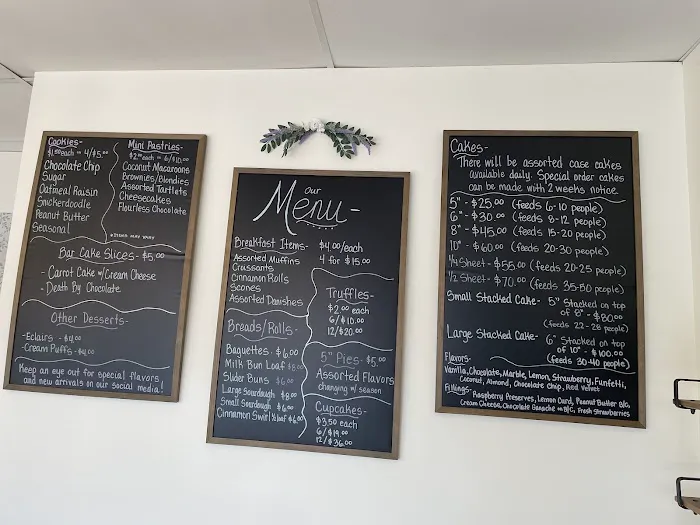 Cookies-
$1.50 each = 4/$5.00
Chocolate Chip
Sugar
Oatmeal Raisin
Snickerdoodle
Peanut Butter
Seasonal
Mini Pastries-
$2.00 each = 6/$10.00
Coconut Macaroons
Brownies/Blondies
Assorted Tartlets
Cheesecakes
Flourless Chocolate
*items may vary
Bar Cake Slices - $5.00
- Carrot Cake w/Cream Cheese
- Death By Chocolate
Other Desserts-
-Eclairs - $4.00
-Cream Puffs - $4.00
Keep an eye out for special flavors
and new arrivals on our social media!
our
Menu-
Breakfast Items- $4.00/each
4 for $15.00
Assorted Muffins
Croissants
Cinnamon Rolls
Scones
Assorted Danishes
Truffles-
$2.00 each
6/$10.00
12/$20.00
Breads/Rolls-
Baguettes - $6.00
Milk Bun Loaf $8.00
Slider Buns $6.00
Large Sourdough $8.00
Small Sourdough $6.00
Cinnamon Swirl ½ loaf $6.00
5" Pies - $5.00
Assorted Flavors
changing w/season
Cupcakes-
$3.50 each
6/$19.00
12/$36.00
Cakes-
There will be assorted case cakes
available daily. Special order cakes
can be made with 2 weeks notice.
5" - $25.00 (feeds 6-10 people)
6" - $30.00 (feeds 8-12 people)
8" - $45.00 (feeds 15-20 people)
10" - $60.00 (feeds 20-30 people)
¼ Sheet - $55.00 (feeds 20-25 people)
½ Sheet - $70.00 (feeds 35-50 people)
Small Stacked Cake- 5" Stacked on top
of 8" - $80.00
(feeds 22-28 people)
Large Stacked Cake- 6" Stacked on top
of 10" - $100.00
(feeds 30-40 people)
Flavors-
Vanilla, Chocolate, Marble, Lemon, Strawberry, Funfetti,
Coconut, Almond, Chocolate Chip, Red Velvet
Fillings- Raspberry Preserves, Lemon Curd, Peanut Butter B/C,
Cream Cheese, Chocolate Ganache or B/C, Fresh Strawberries